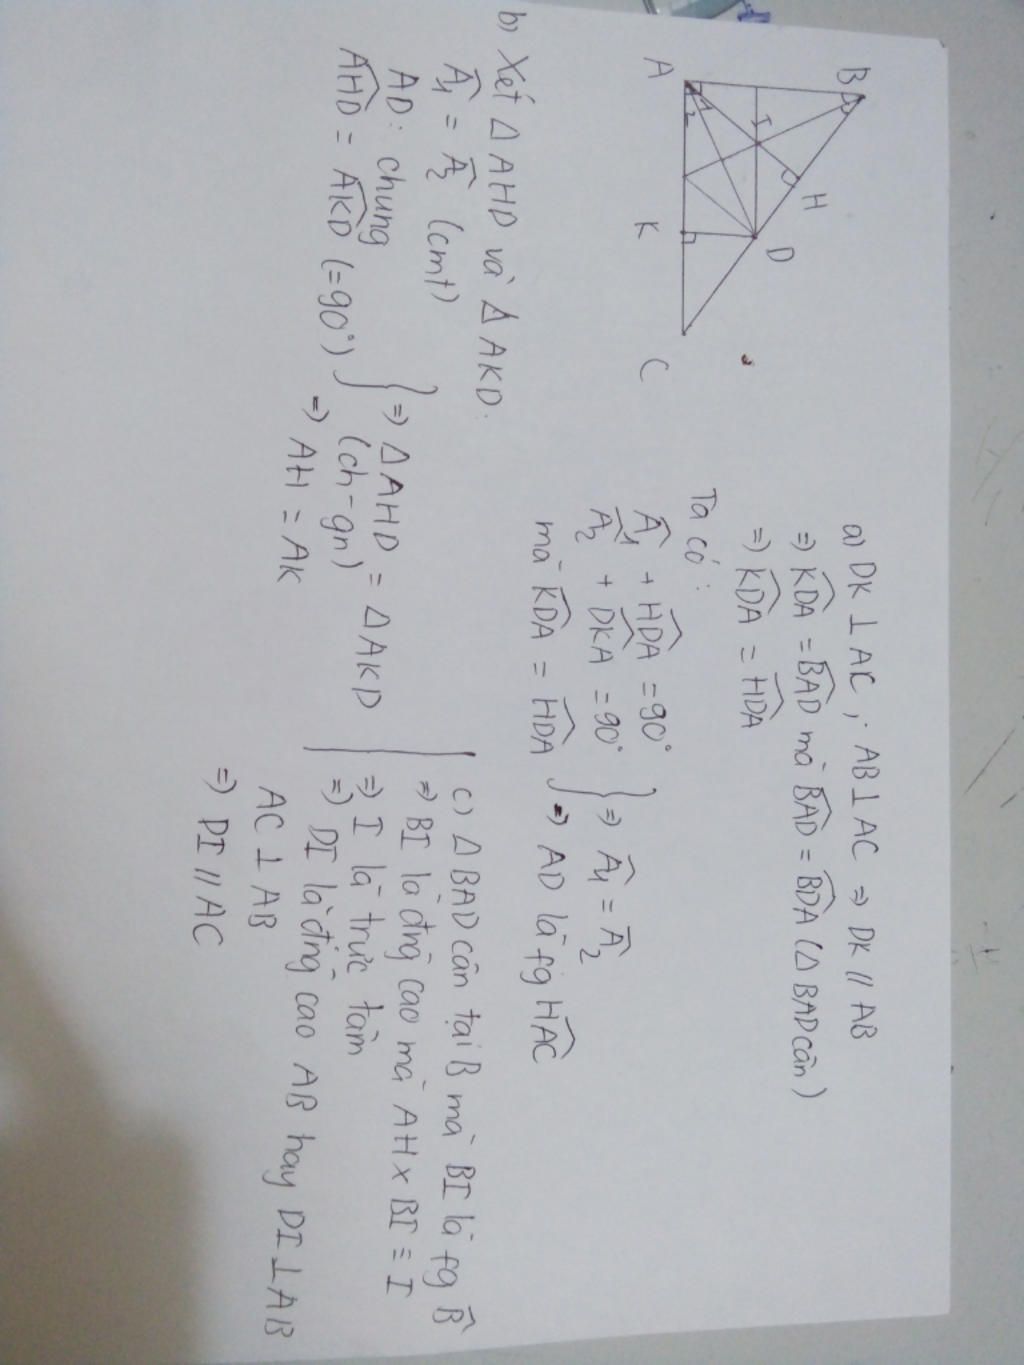 B
A
I
H
D
K
C
1
2
a) DK ⊥ AC ; AB ⊥ AC ⇒ DK // AB
⇒ KDA = BAD mà BAD = BDA (Δ BAD cân)
⇒ KDA = HDA
Ta có :
A1 + HDA = 90°
A2 + DKA = 90° } ⇒ A1 = A2
mà KDA = HDA ⇒ AD là fg HAC
b) Xét Δ AHD và Δ AKD.
A1 = A2 (cmt)
AD: chung
AHD = AKD (=90°) } ⇒ Δ AHD = Δ AKD
(ch-gn)
⇒ AH = AK
c) Δ BAD cân tại B mà BI là fg B
⇒ BI là đng cao mà AH x BI = I
⇒ I là trực tâm
⇒ DI là đng cao AB hay DI ⊥ AB
AC ⊥ AB
⇒ DI // AC